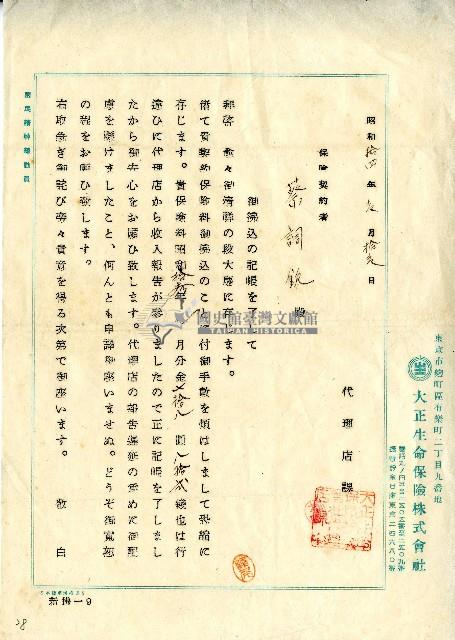 東京市麴町區有樂町二丁目九番地
大正生命保險株式會社
昭和拾四年 月拾 日
代理店課
保險契約者
蔡 銃 殿
御拂込の記帳を了して
拜啓 愈々御清祥の段大慶に存じます。
偖て貴契約保險料御拂込のことに付御手數を煩はしまして恐縮に
存じます。貴保險料昭和 年 月分金 拾八圓八拾貳錢也は行
違ひに代理店から收入報告が參りましたので正に記帳を了しまし
たから御安心をお願ひ致します。代理店の報告遲延の爲めに御配
慮を懸けましたこと、何んとも申譯御座いませぬ。どうぞ御寬恕
の程をお願ひ致します。
右取急ぎ御詫び旁々貴意を得る次第で御座います。 敬白
國民精神總動員
國史館臺灣文獻館
TAIWAN HISTORICA
新機一9
28